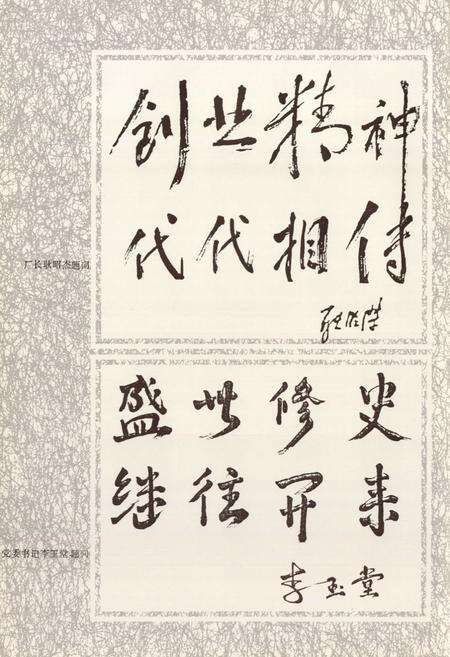 创业精神
代代相传
厂长耿昭杰题词
耿昭杰
盛世修史
继往开来
党委书记李玉堂题词
李玉堂